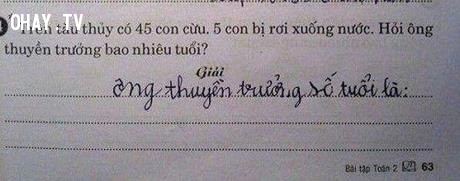 OHAY.TV
Trên tàu thủy có 45 con cừu. 5 con bị rơi xuống nước. Hỏi ông
thuyền trưởng bao nhiêu tuổi?
Giải
Ông thuyền trưởng số tuổi là:
Bài tập Toán 2 63